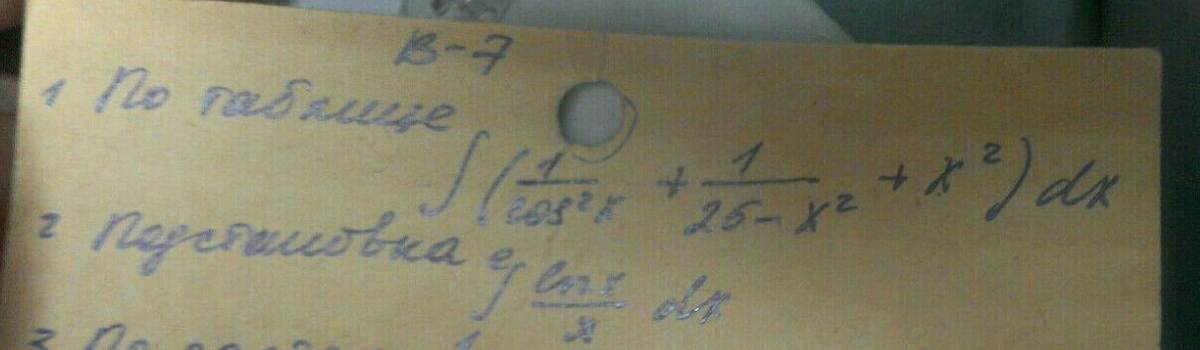 В-7
1 По таблице
∫ (1/cos²x + 1/25-x² + x²) dx
2 Подстановка
∫₁ᵉ ln x/x dx
3 По